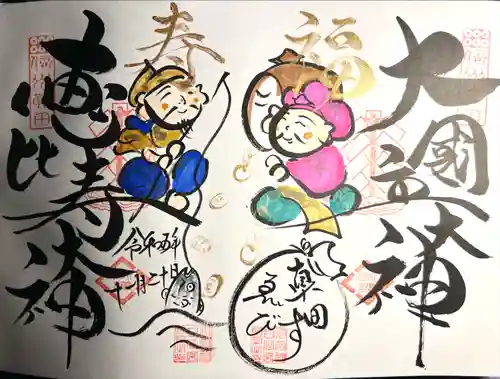 大國主神
福
寿
草田
ゑびす
令和五年
十一月二十日
恵比寿神